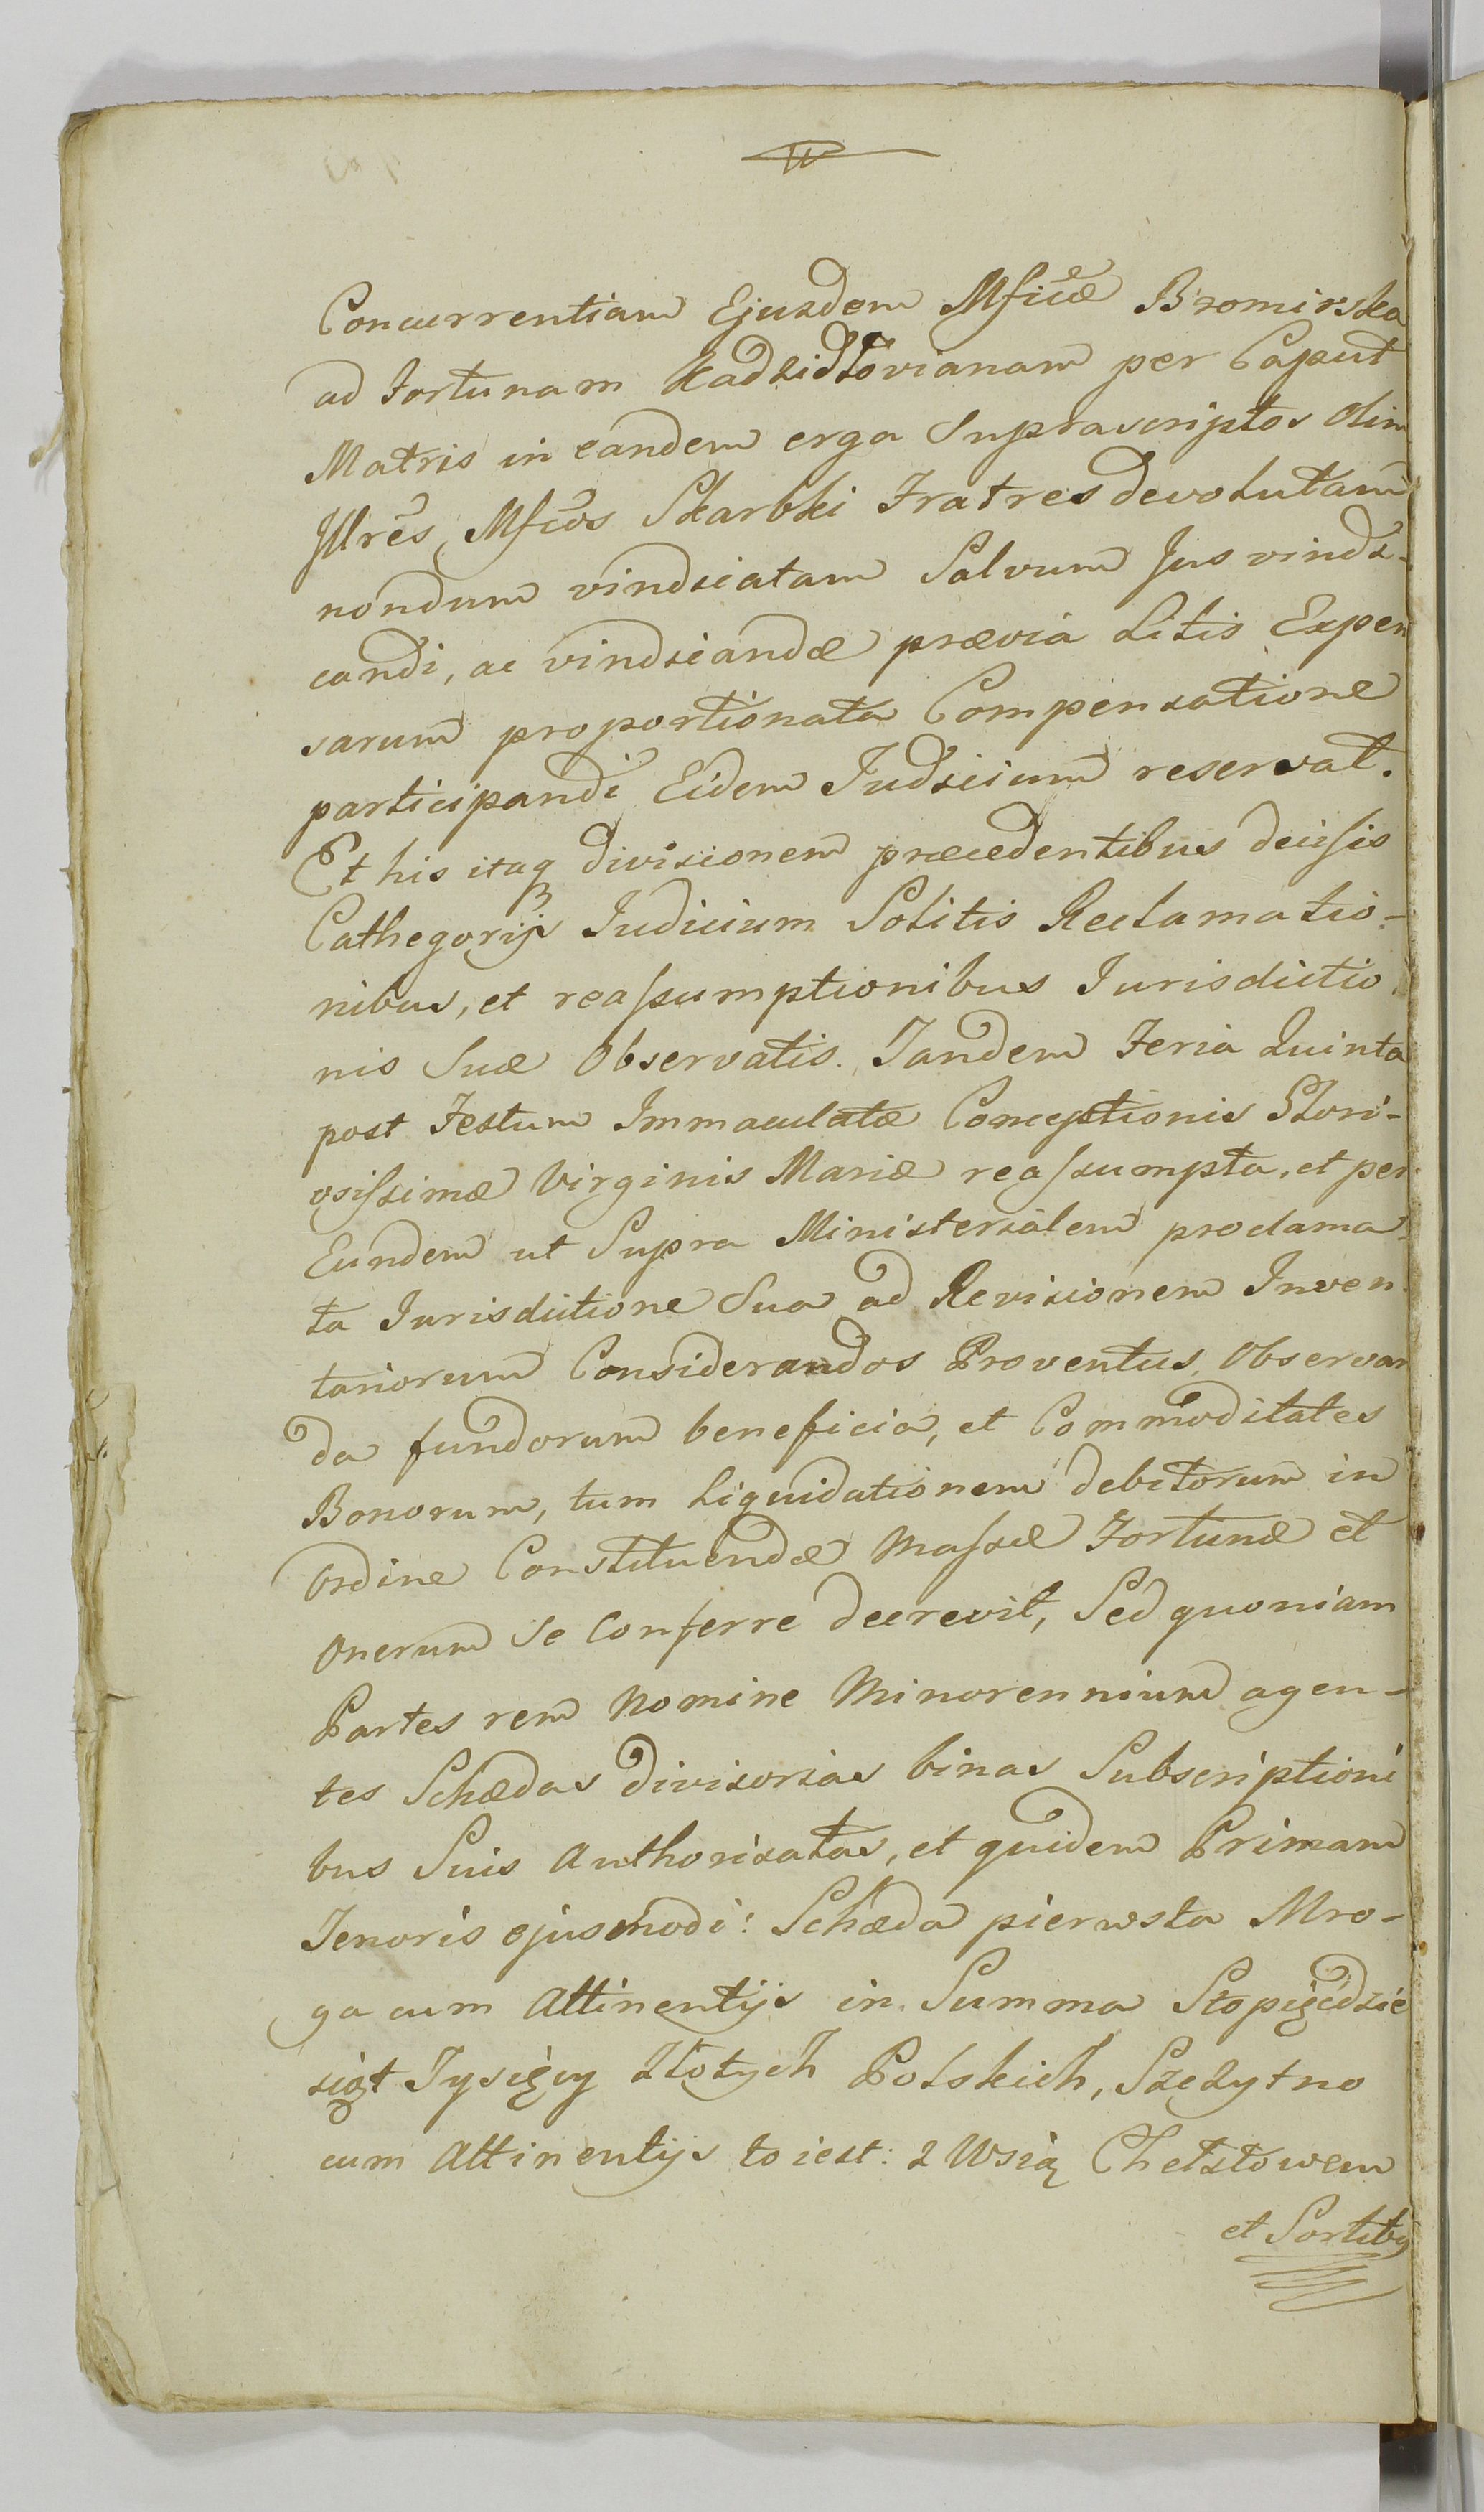 Concurrentiam Ejusdem Mficæ Bromirska
ad Fortunam Radzidłovianam per Caput
Matris in eandem erga Suprascriptos Olim
Jllres, Mficos Skarbki Fratres devolutam
nondum vindicatam Salvum Jus vindi-
candi, ac vindicandæ prævia Litis Expen
sarum proportionata Compensatione
participandi Eidem Judicium reservat.
Et his itaq divisionem præcedentibus decisis
Cathegorijs Judicium Solitis Reclamatio-
nibus, et reassumptionibus Jurisdictio
nis Suæ Observatis. Tandem Feria Quinta
post Festum Immaculatæ Conceptionis Glori-
osissimæ Virginis Mariæ reassumpta, et per
Eundem ut Supra Ministerialem proclama-
ta Jurisdictione Sua ad Revisionem Inven
tariorum Considerandos Proventus, Observan
da fundorum beneficia, et Commoditates
Bonorum, tum Liquidationem debitorum in
Ordine Constituendæ Massæ Fortunæ et
Onerum Se Conferre decrevit, Sed quoniam
Partes rem Nomine Minorennium agen-
tes Schædas divisorias binas Subscriptioni
bus Suis Authorisatas, et quidem Primam
Tenoris ejusmodi: Schæda pierwsza Mro-
ga cum Attinentijs in Summa Stopięcdzie
siąt Tysięcy Złotych Polskich, Szczytno
cum Attinentijs to iest: z Wsią Chełstowem
et Sortibus